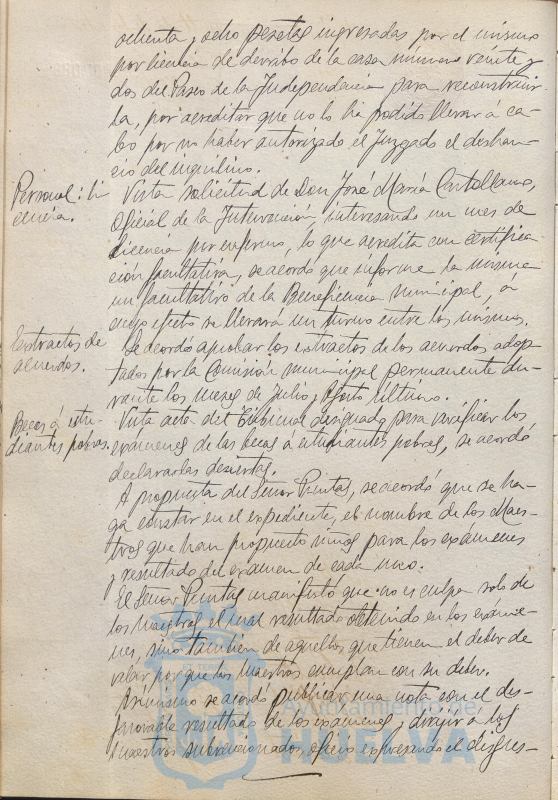 ochenta y ocho pesetas ingresadas por el mismo
por licencia de derribo de la casa número veinte y
dos del Paseo de la Independencia para reconstruir
la, por acreditar que no lo ha podido llevar á ca-
bo por no haber autorizado el Juzgado el deshau-
cio del inquilino.
Personal: li
cencia.
Vista solicitud de Don José María Castellano,
Oficial de la Intervención, interesando un mes de
licencia por enfermo, lo que acredita con certifica
ción facultativa, se acordó que informe la misma
un facultativo de la Beneficencia municipal, a
cuyo efecto se llevará un turno entre los mismos.
Extractos de
acuerdos.
Se acordó aprobar los extractos de los acuerdos adop-
tados por la Comisión municipal permanente du-
rante los meses de Julio y Agosto últimos.
Becas á estu-
diantes pobres.
Vista acta del Tribunal designado para verificar los
exámenes de las becas a estudiantes pobres, se acordó
declararlas desiertas.
A propuesta del Señor Puntas, se acordó que se ha-
ga constar en el expediente, el nombre de los Maes-
tros que han propuesto niños para los exámenes
y resultado del examen de cada uno.
El Señor Puntas manifestó que no es culpa solo de
los maestros el mal resultado obtenido en los exáme-
nes, sino tambien de aquellos que tienen el deber de
velar por que los maestros cumplan con su deber.
Asimismo se acordó publicar una nota con el des-
favorable resultado de los exámenes, y dirigir a los
maestros subvencionados, oficio expresando el disgus-
Ayuntamiento de
HUELVA